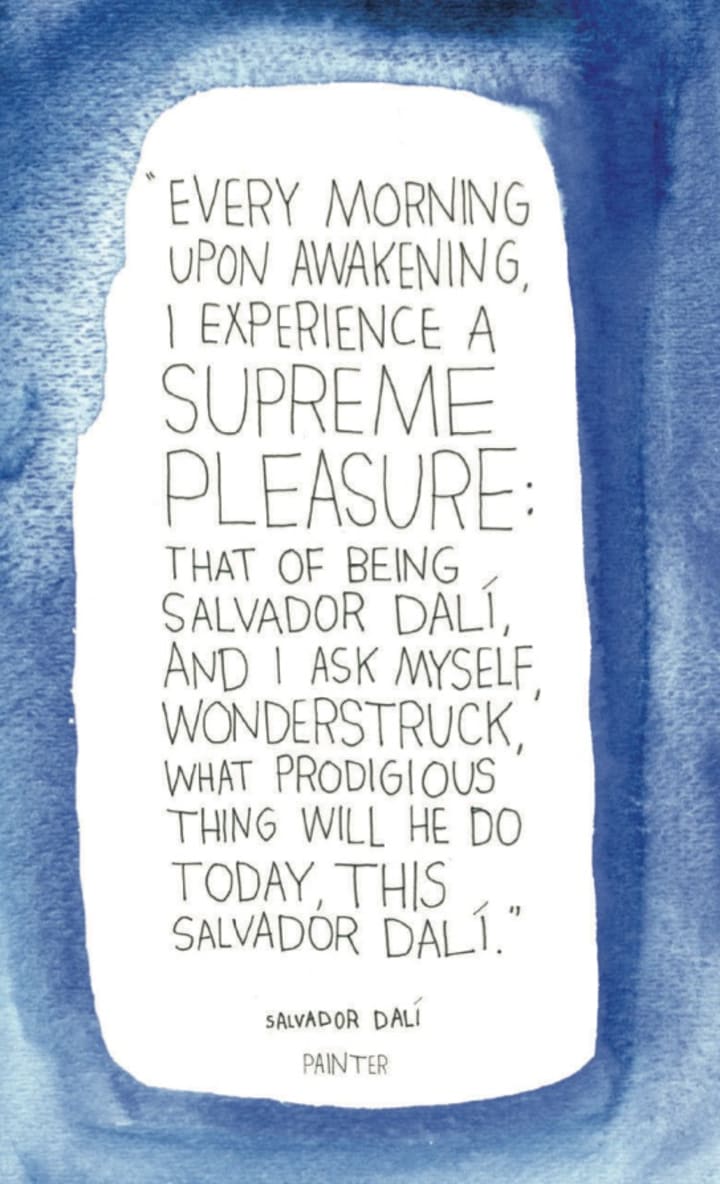 "EVERY MORNING
UPON AWAKENING,
I EXPERIENCE A
SUPREME
PLEASURE:
THAT OF BEING
SALVADOR DALÍ,
AND I ASK MYSELF,
WONDERSTRUCK,
WHAT PRODIGIOUS
THING WILL HE DO
TODAY, THIS
SALVADOR DALÍ."
SALVADOR DALÍ
PAINTER